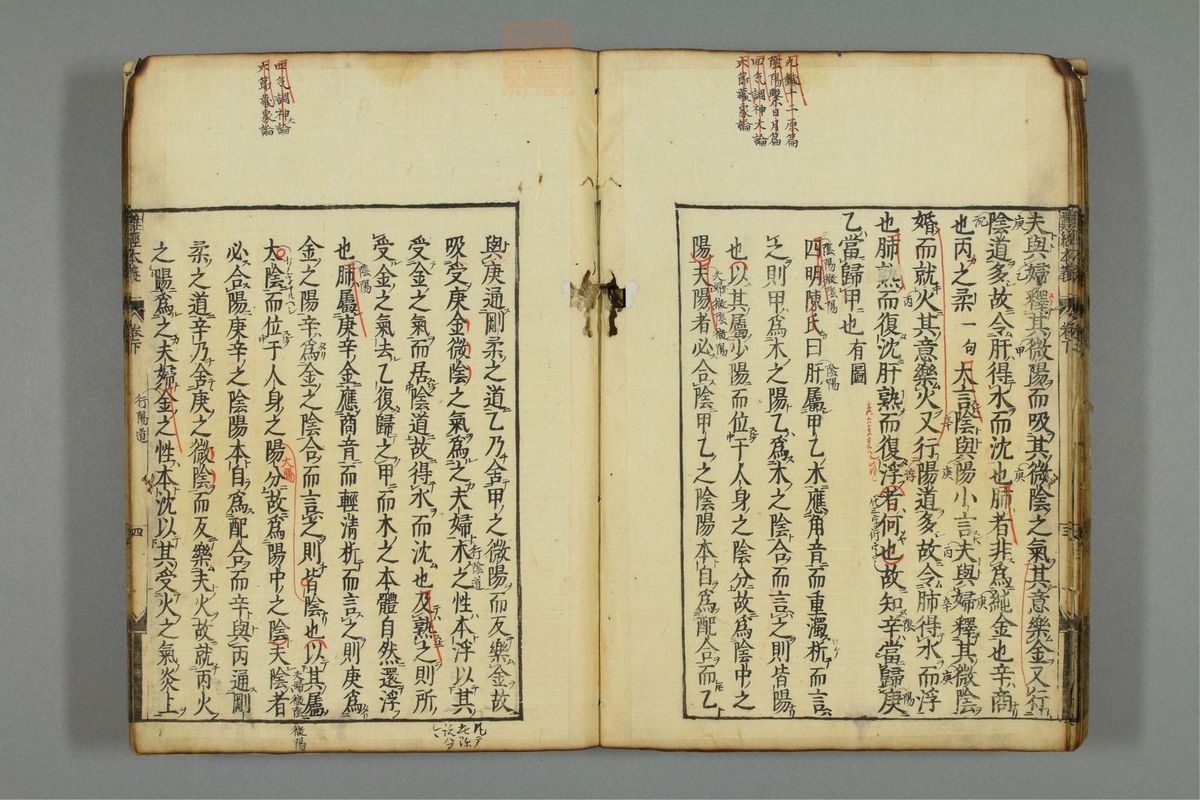 九鍼十二原篇
陰陽繫日月篇
四气調神大論
六節藏象論
夫與婦釋其微陽而吸其微陰之氣其意樂金又行
陰道多故令肝得水而沈也肺者非爲純金也辛商
也丙之柔一句大言陰與陽小言夫與婦釋其微陰
婚而就火其意樂火又行陽道多故令肺得水而浮
也肺熟而復沈肝熟而復浮者何也故知辛當歸庚
乙當歸甲也有圖
四明陳氏曰肝屬甲乙木應角音而重濁析而言
之則甲爲木之陽乙爲木之陰合而言之則皆陽
也以其屬少陽而位于人身之陰分故爲陰中之
陽夫陽者必合陰甲乙之陰陽本自爲配合而乙
四气調神論
六節藏象論
與庚通剛柔之道乙乃舍甲之微陽而反樂金故
吸受庚金微陰之氣爲之夫婦木之性本浮以其
受金之氣而居陰道故得水而沈也及熟之則所
受金之氣去乙復歸之甲而木之本體自然還浮
也肺屬庚辛金應商音而輕清析而言之則庚爲
金之陽辛爲金之陰合而言之則皆陰也以其屬
太陰而位于人身之陽分故爲陽中之陰夫陰者
必合陽庚辛之陰陽本自爲配合而辛與丙通剛
柔之道辛乃舍庚之微陰而反樂夫火故就丙火
之陽爲之夫婦金之性本沈以其受火之氣炎上
行陰道
行陽道
卷下
四